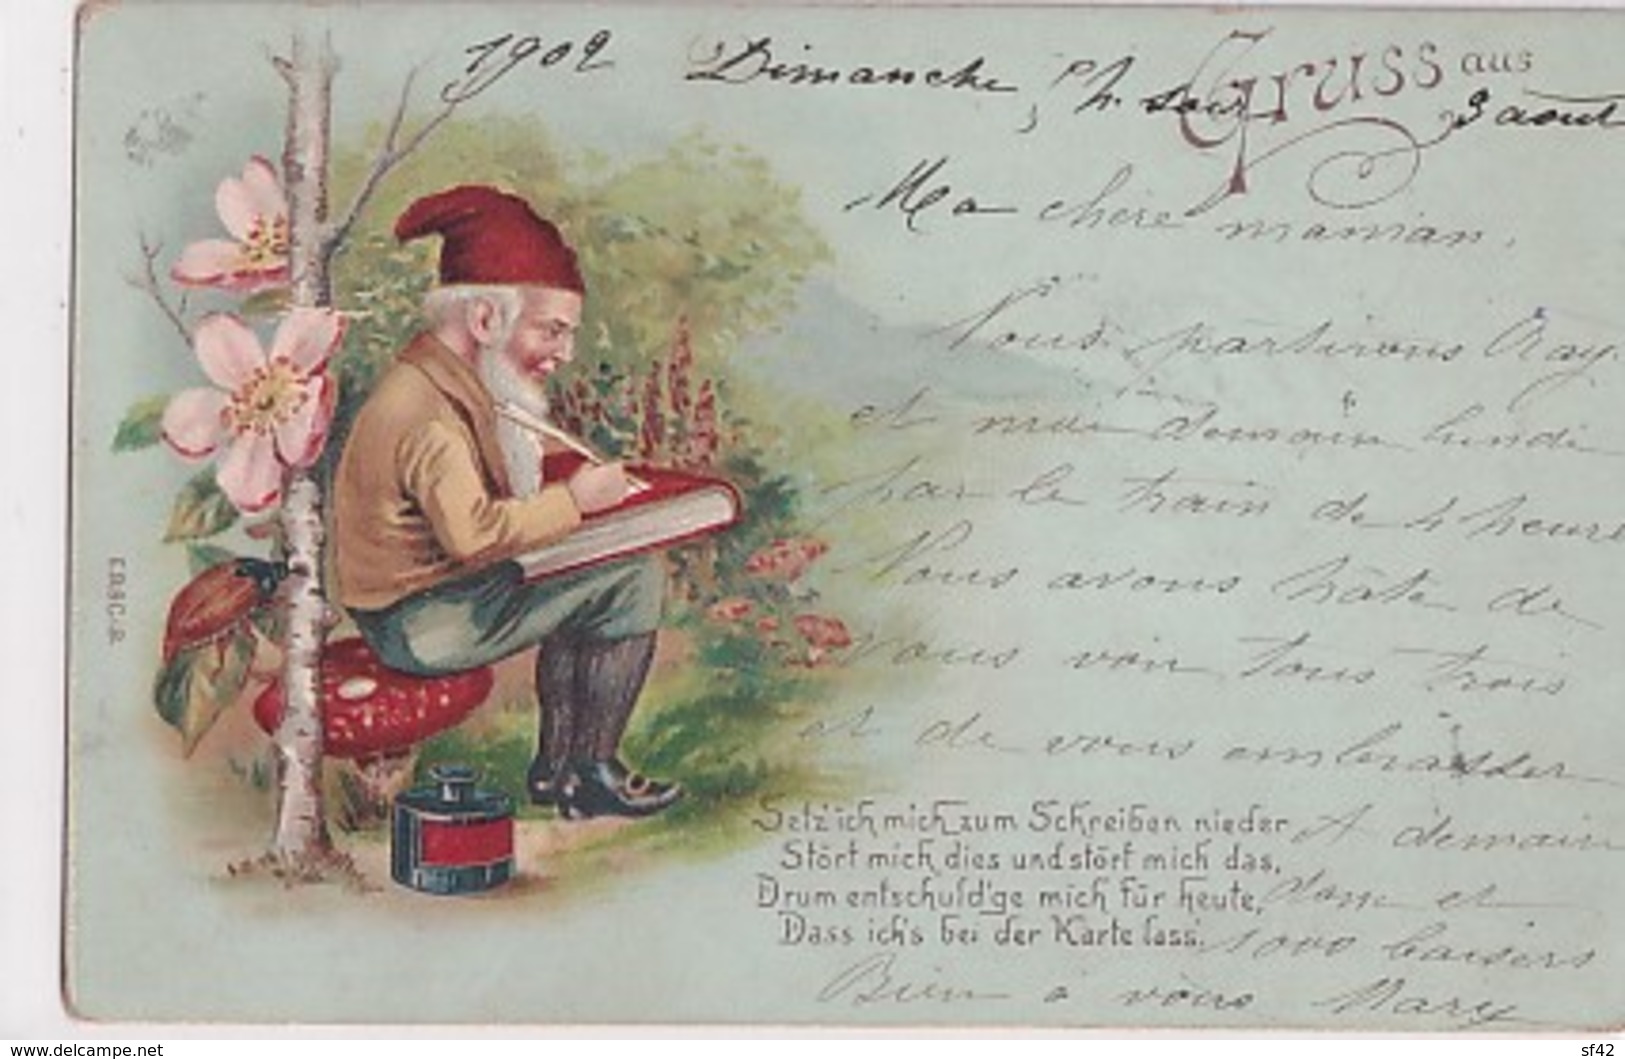 1902 Dimanche, 5 h. soir 3 aout
Gruss aus
Ma chère maman,
Nous partirons Ray
et moi demain lundi
par le train de 4 heures
Nous avons hâte de
vous voir tous trois
et de vous embrasser
A demain
donc et
1000 baisers
Bien à vous Mary
Setz' ich mich zum Schreiben nieder
Stört mich dies und stört mich das,
Drum entschuld'ge mich für heute,
Dass ich's bei der Karte lass'.
www.delcampe.net
sf42